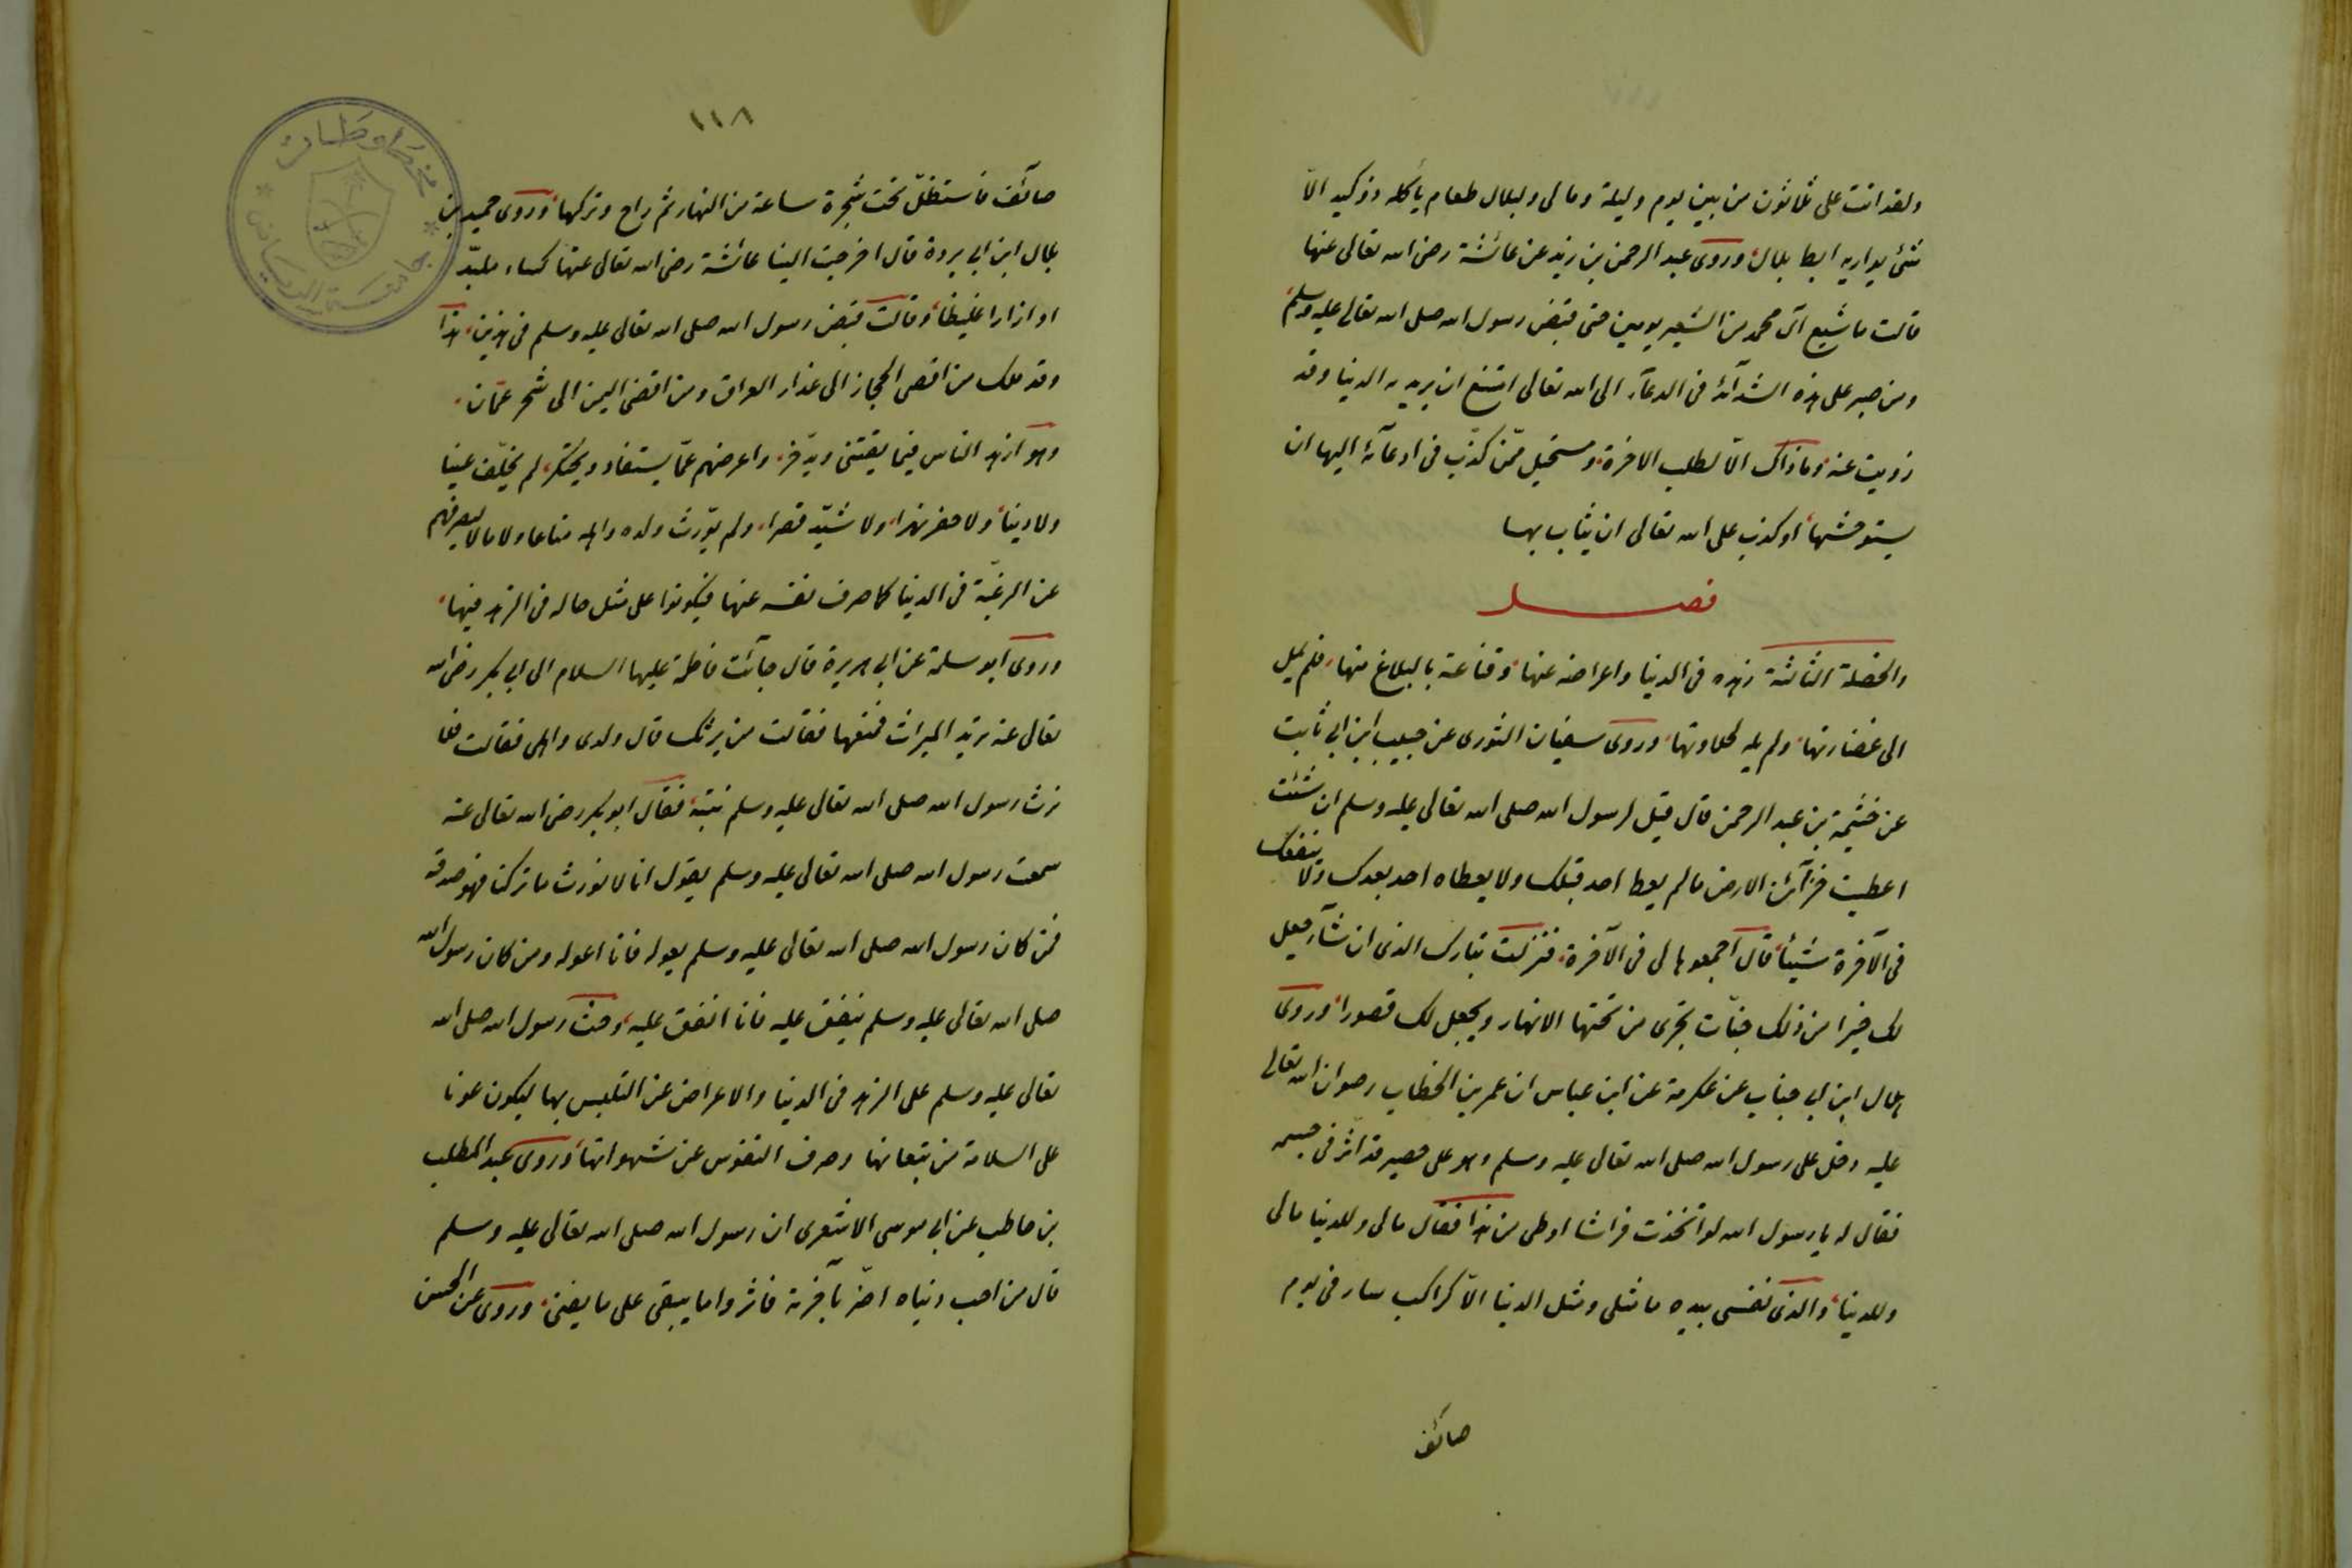 ولقد اتت على ثلاثون من بين يوم وليلة ومالى ولبلال طعام يأكله ذو كبد الا
شئ يواريه ابط بلال وروى عبد الرحمن بن زيد عن عائشة رضى الله تعالى عنها
قالت ما شبع آل محمد من الشعير يومين حتى قبض رسول الله صلى الله تعالى عليه وسلم
ومن صبر على هذه الشدآئد فى الدعآء الى الله تعالى امتنع ان يريد به الدنيا وقد
زويت عنه وما ذاك الا لطلب الاخرة ومستحيل ممن كذب فى ادعآئه اليها ان
يستوحشها او كذب على الله تعالى ان يثاب بها
فصل
والخصلة الثالثة زهده فى الدنيا واعراضه عنها وقناعة بالبلاغ منها فلم يمل
الى غضارتها ولم يله لحلاوتها وروى سفيان الثورى عن حبيب ابن ابى ثابت
عن خثيمة بن عبد الرحمن قال قيل لرسول الله صلى الله تعالى عليه وسلم ان شئت
اعطيت خزآئن الارض مالم يعط احد قبلك ولا يعطاه احد بعدك ولا ينقصك
فى الآخرة شيئا قال اجمعوها لى فى الآخرة فنزلت تبارك الذى ان شآء جعل
لك خيرا من ذلك جنات تجرى من تحتها الانهار ويجعل لك قصورا وروى
هلال ابن ابى جناب عن عكرمة عن ابن عباس ان عمر بن الخطاب رضوان الله تعالى
عليه دخل على رسول الله صلى الله تعالى عليه وسلم وهو على حصير قد اثر فى جسمه
فقال له يا رسول الله لو اتخذت فراشا اوطى من هذا فقال مالى وللدنيا مالى
وللدنيا والذى نفسى بيده ما مثلى ومثل الدنيا الا كراكب سار فى يوم
صائف
١١٨
صآئف فاستظل تحت شجرة ساعة من النهار ثم راح وتركها وروى حميد بن
بلال ابن ابى بردة قال اخرجت الينا عائشة رضى الله تعالى عنها كساء ملبد
او ازارا غليظا وقالت قبض رسول الله صلى الله تعالى عليه وسلم فى هذين هذا
وقد ملك من اقصى الحجاز الى عذار العراق ومن اقصى اليمن الى شحر عمان
وهو ازهد الناس فيما يقتنى ويدخر واعرضهم عما يستفاد ويحتكر لم يخلف عينا
ولا دينا ولا حفر نهرا ولا شيد قصرا ولم يورث ولده واهله متاعا ولا مالا ليصرفهم
عن الرغبة فى الدنيا كما صرف نفسه عنها فيكونوا على مثل حاله فى الزهد فيها
وروى ابو سلمة عن ابى هريرة قال جآئت فاطمة عليها السلام الى ابى بكر رضى الله
تعالى عنه تريد الميراث فمنعها فقالت من يرثك قال ولدى واهلى فقالت فلا
ترث رسول الله صلى الله تعالى عليه وسلم بنته فقال ابو بكر رضى الله تعالى عنه
سمعت رسول الله صلى الله تعالى عليه وسلم يقول انا لا نورث ما تركنا فهو صدقة
فمن كان رسول الله صلى الله تعالى عليه وسلم يعوله فانا اعوله ومن كان رسول الله
صلى الله تعالى عليه وسلم ينفق عليه فانا انفق عليه وحث رسول الله صلى الله
تعالى عليه وسلم على الزهد فى الدنيا والاعراض عن التلبس بها ليكون عونا
على السلامة من تبعاتها وصرف النفوس عن شهواتها وروى عبد المطلب
بن حاطب عن ابى موسى الاشعرى ان رسول الله صلى الله تعالى عليه وسلم
قال من احب دنياه اضر بآخرته فاثروا ما يبقى على ما يفنى وروى عن الحسن
مخطوطات
جامعة الرياض